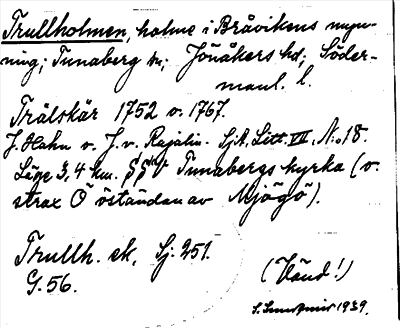 Trullholmen, holme i Bråvikens mynning; Tunaberg sn; Jönåkers hd; Södermanl. l.
Trälskär 1752 o. 1767.
J. Hahn o. J. v. Rajalin. Sjk, Litt. VII, N:o 18.
Läge 3,4 km. SSV Tunabergs kyrka (o. strax Ö öständan av Mjögö).
Trullh. ek, Sj. 251.
G. 56.
(Vänd!)
1939.